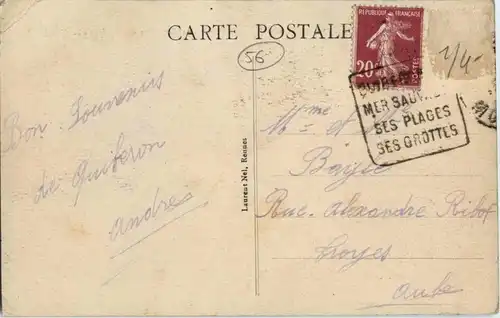 CARTE POSTALE
56
REPUBLIQUE FRANÇAISE
20
POSTES
MER SAUVAGE
SES PLAGES
SES GROTTES
Bon Souvenirs
de Quiberon
André
Laurent Nel, Rennes
Mme et M
Rue Alexandre Ribot
Troyes
Aube